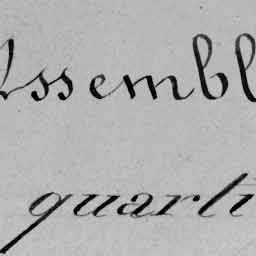 Assembl
quarti